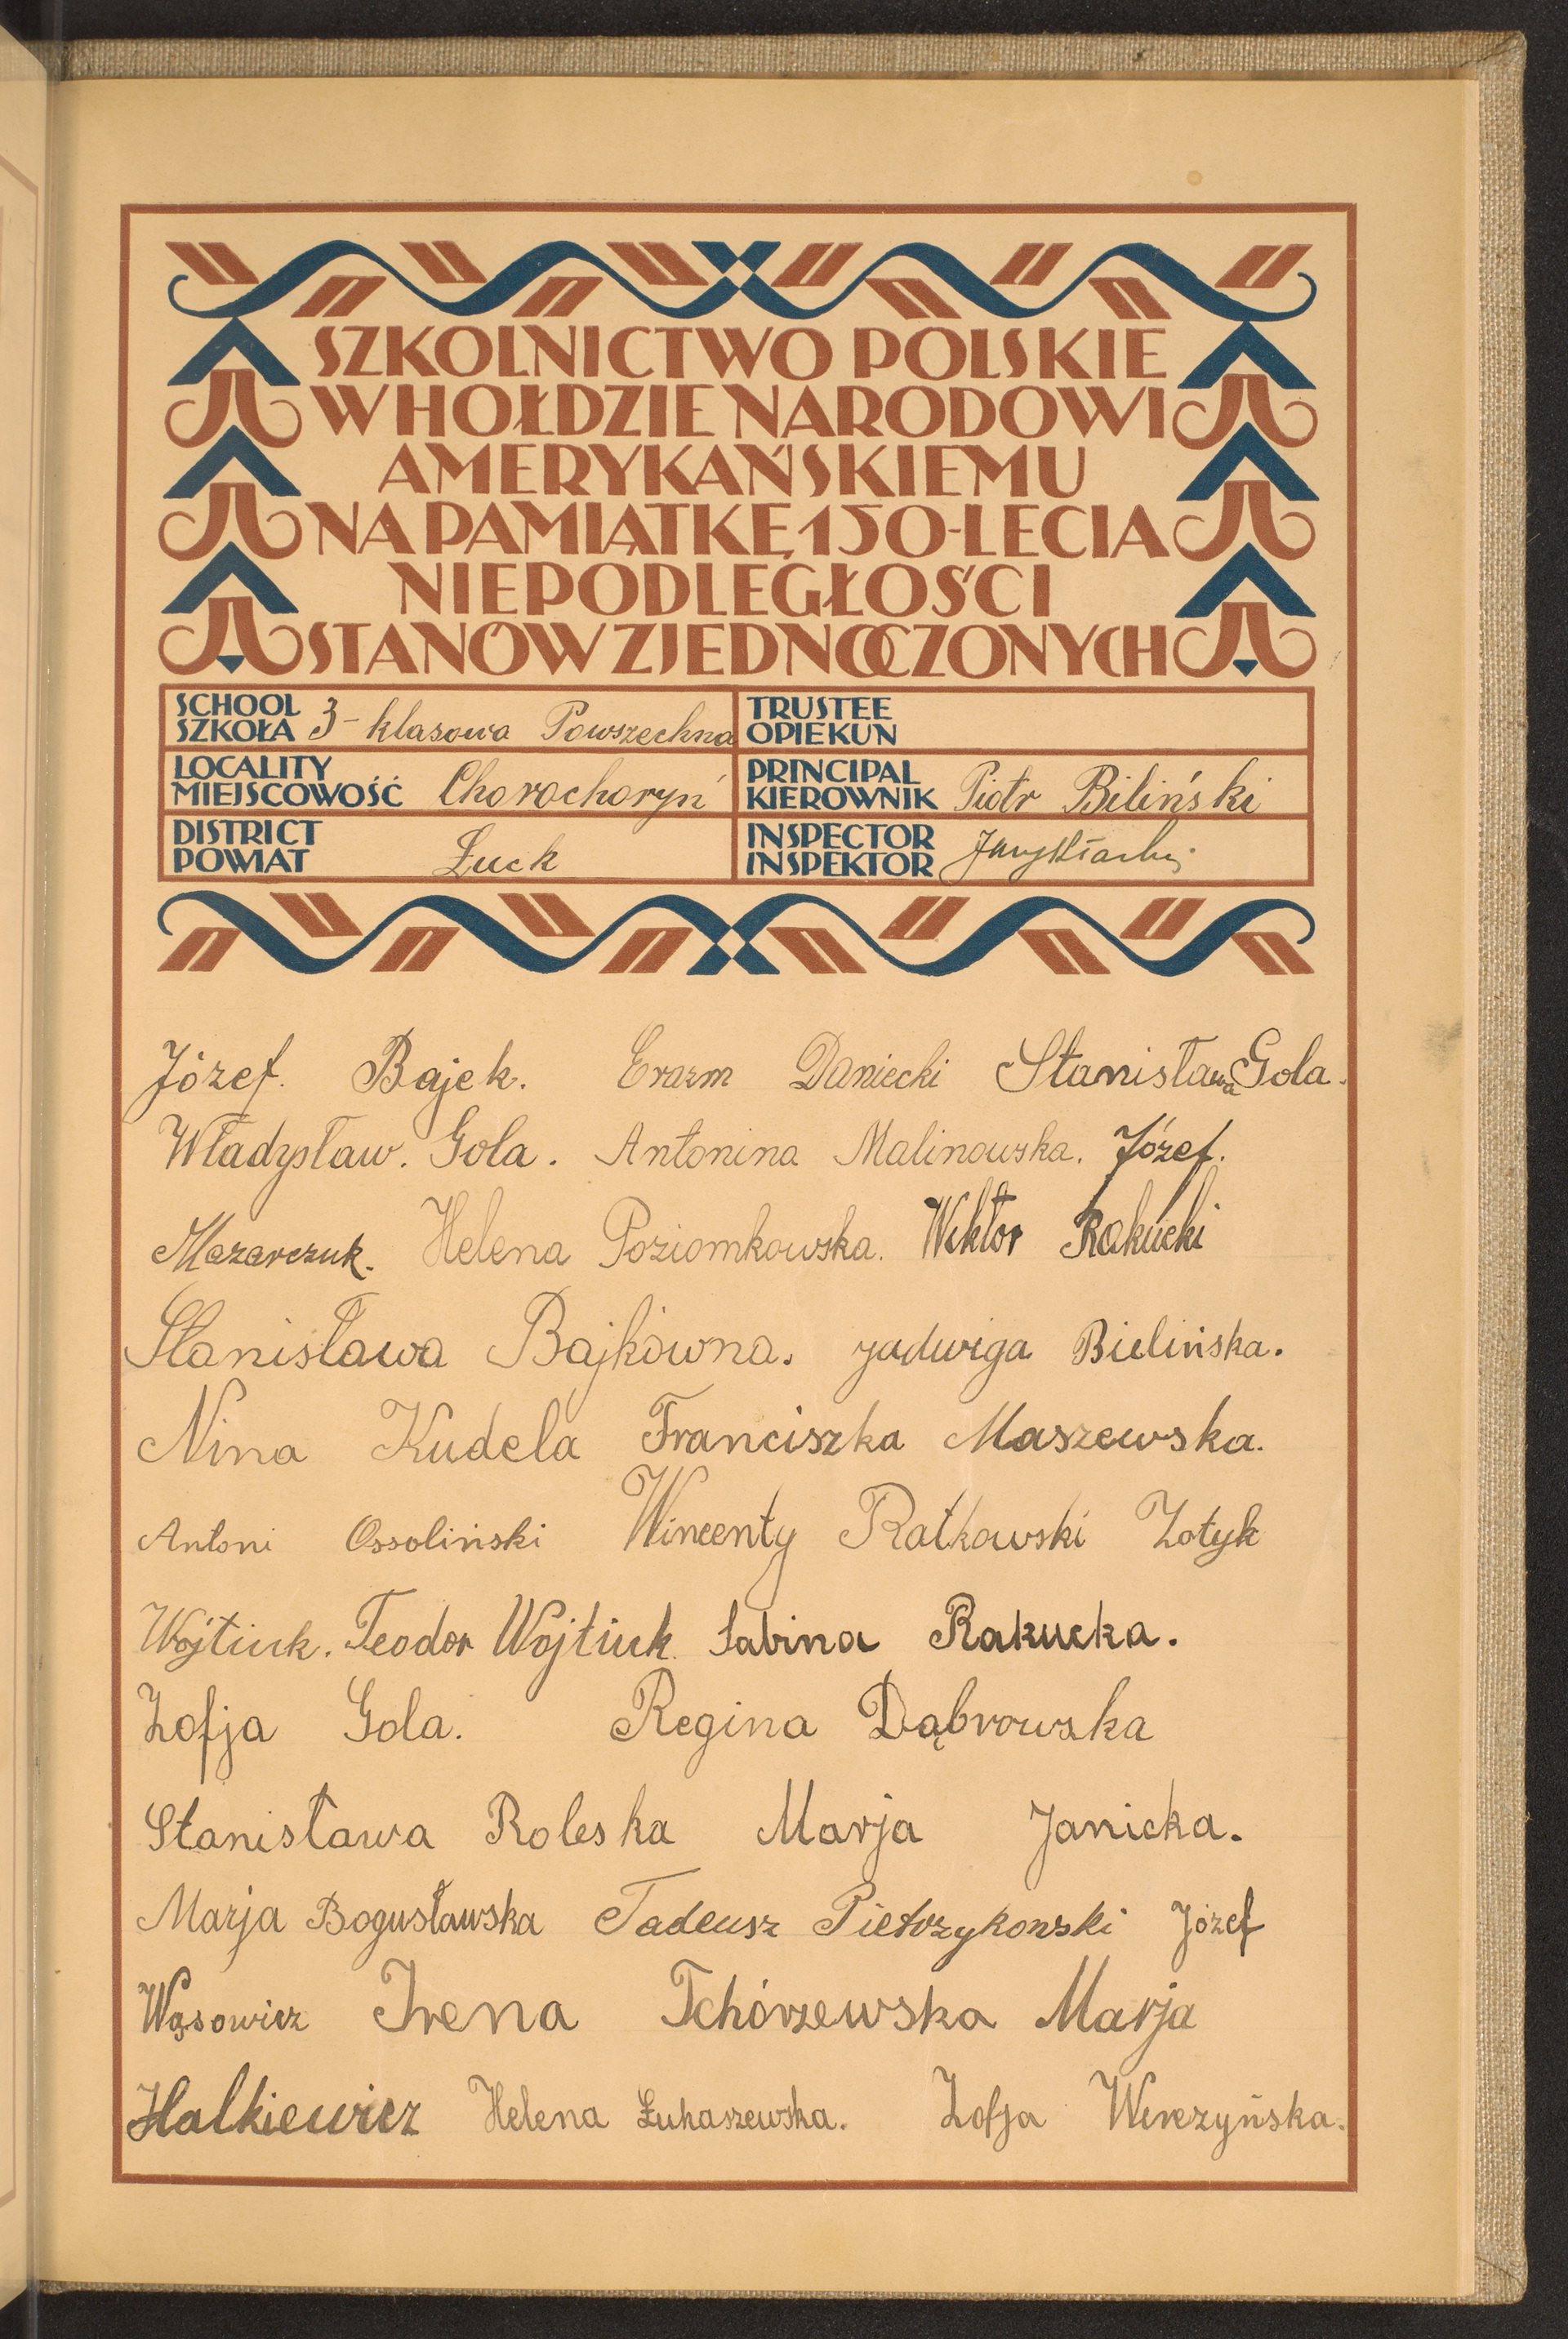 SZKOLNICTWO POLSKIE
W HOŁDZIE NARODOWI
AMERYKAŃSKIEMU
NA PAMIĄTKĘ 150-LECIA
NIEPODLEGŁOŚCI
STANÓW ZJEDNOCZONYCH
SCHOOL
SZKOŁA 3-klasowa Powszechna
TRUSTEE
OPIEKUN
LOCALITY
MIEJSCOWOŚĆ Chorochoryń
PRINCIPAL
KIEROWNIK Piotr Biliński
DISTRICT
POWIAT Łuck
INSPECTOR
INSPEKTOR
Józef. Bajek. Erazm Daniecki Stanisława Gola.
Władysław. Gola. Antonina Malinowska. Józef.
Mazarczuk. Helena Poziomkowska. Wiktor Rakucki
Stanisława Bajkówna. Jadwiga Bielińska.
Nina Kudela Franciszka Maszewska.
Antoni Ossoliński Wincenty Ratkowski Zotyk
Wojtiuk. Teodor Wojtiuk. Sabina Rakucka.
Zofja Gola. Regina Dąbrowska
Stanisława Roleska Marja Janicka.
Marja Bogusławska Tadeusz Pietrzykowski Józef
Wąsowicz Irena Tchórzewska Marja
Halkiewicz Helena Łukaszewska. Zofja Wereżyńska.